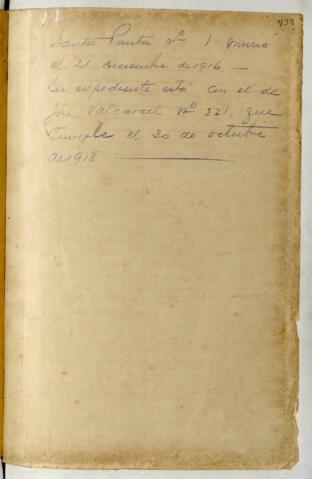 438
Santos Panta Nº 1 murió
el 21 diciembre de 1916 —
Su expediente está con el de
José Valcarcel Nº 321, que
cumple el 30 de octubre
de 1918